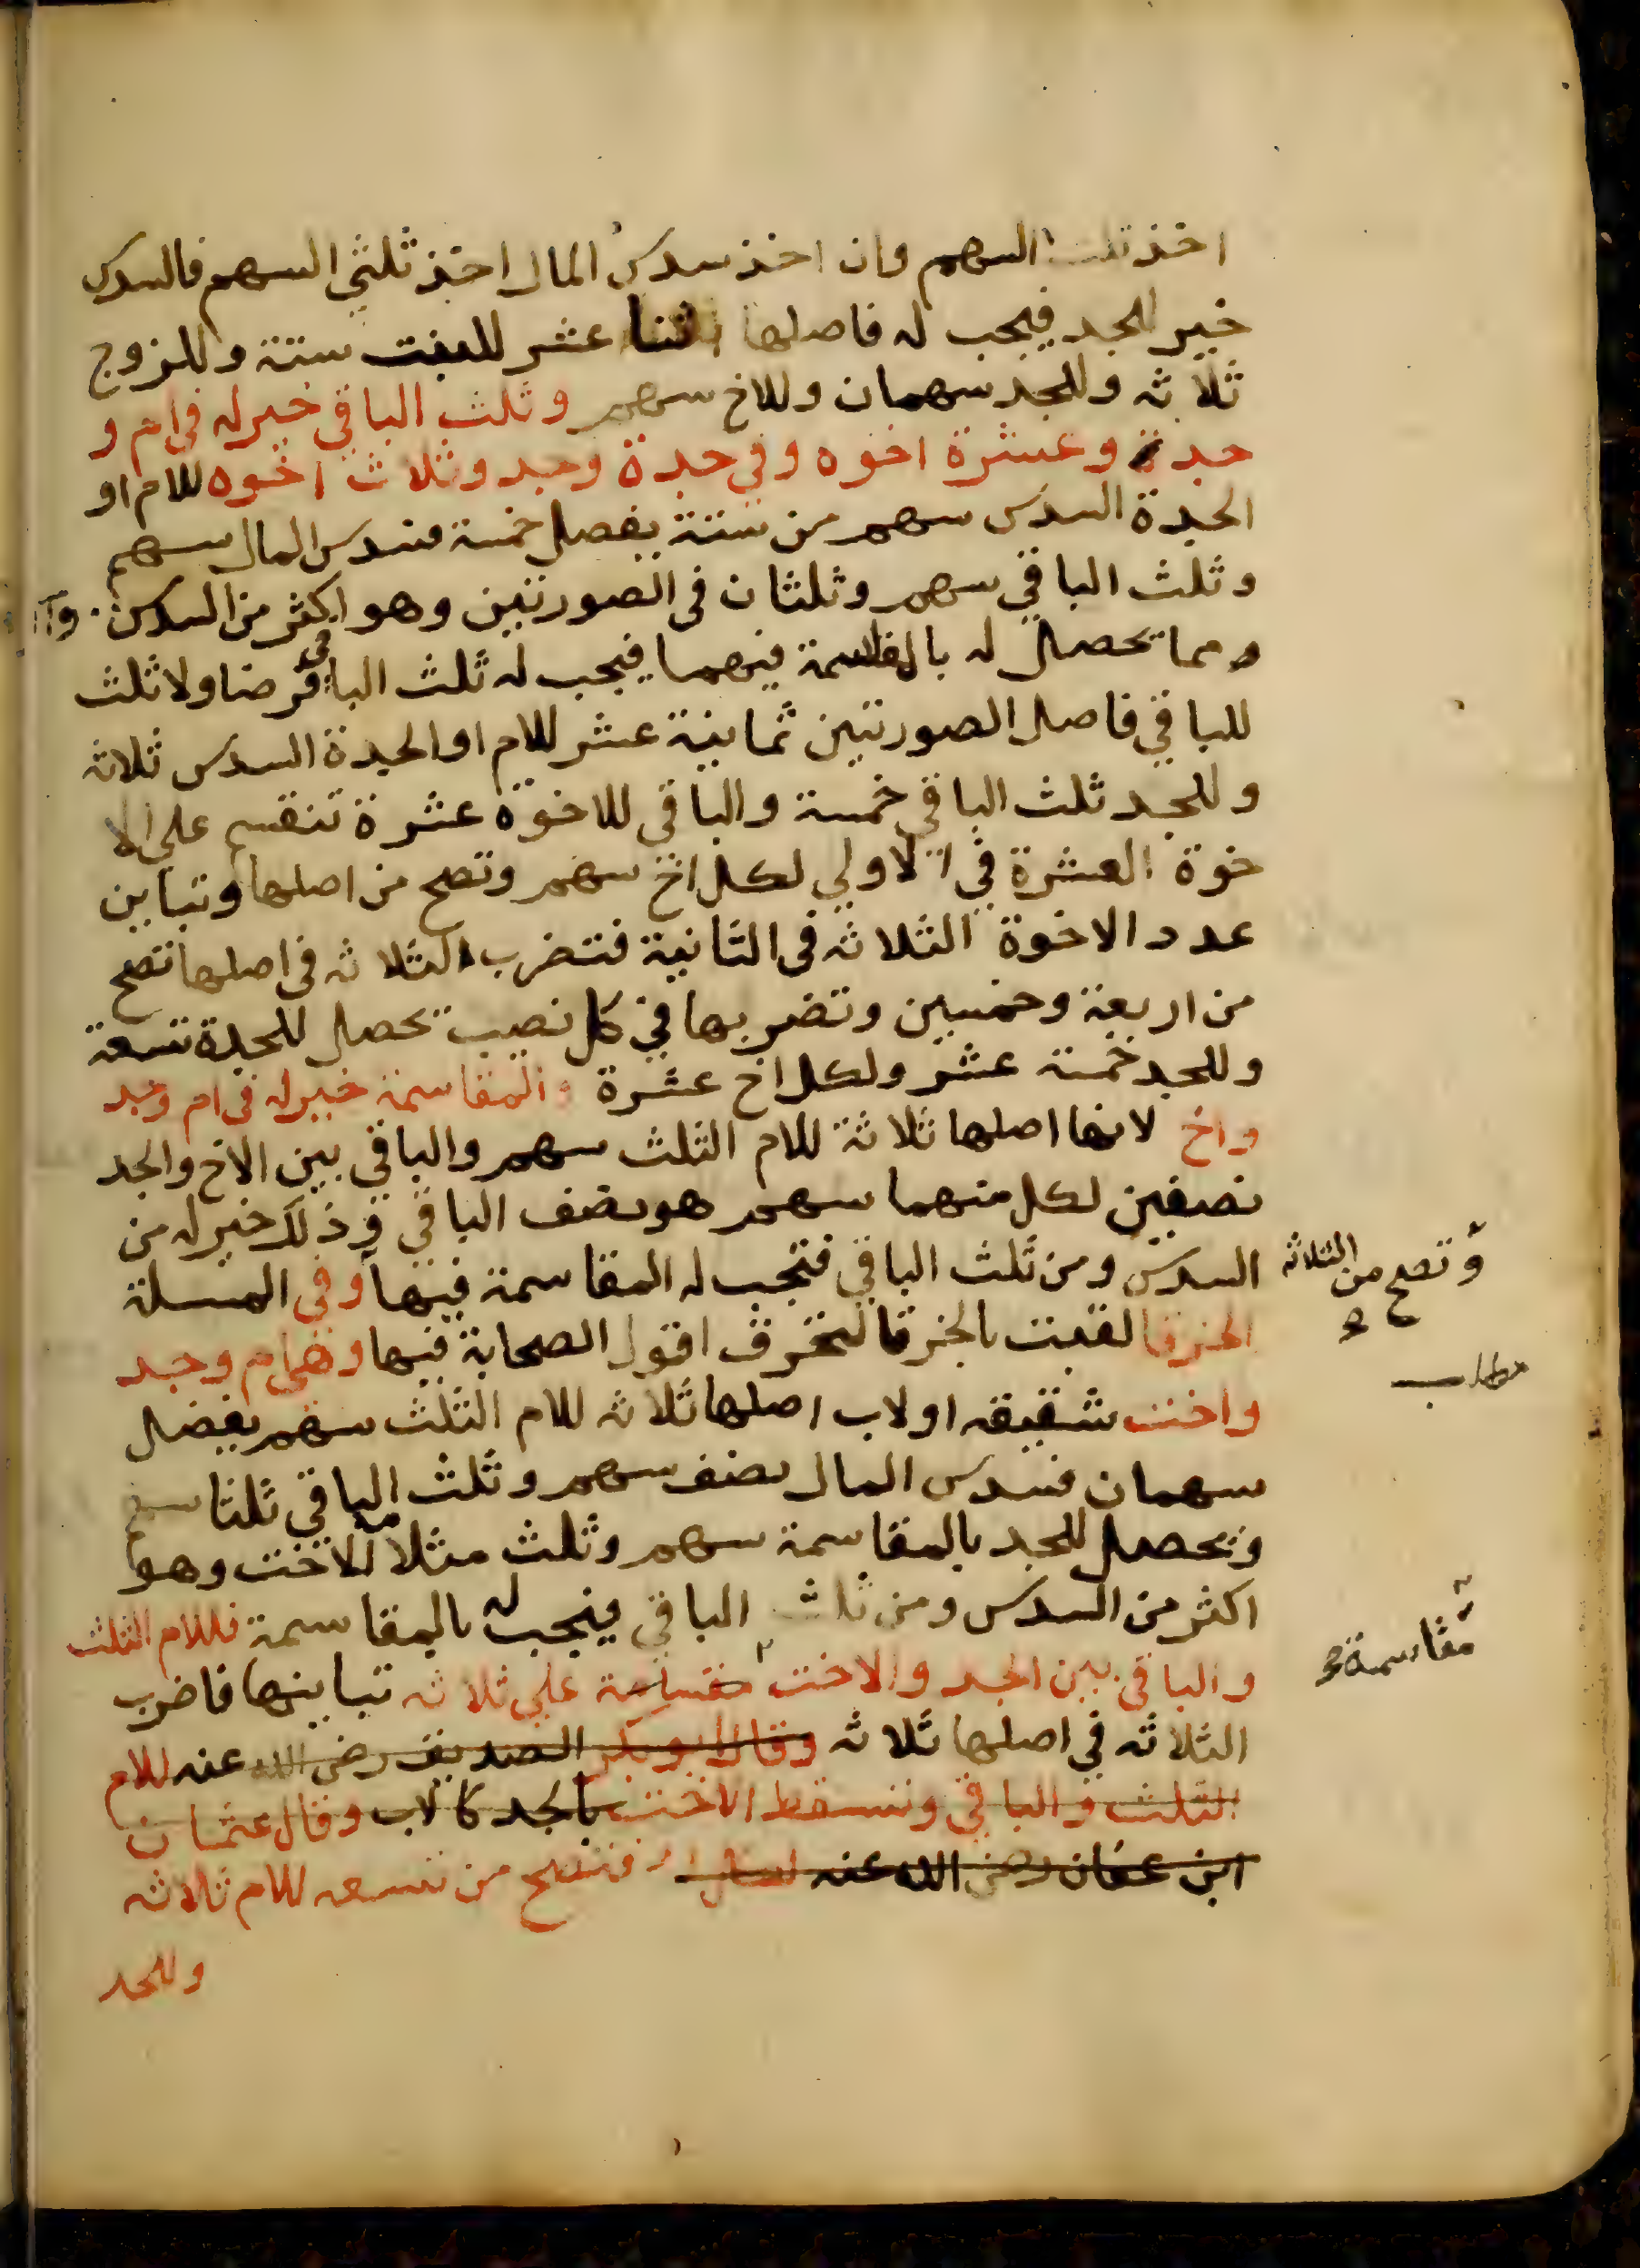 اخذ ثلث السهم وان اخذ سدس المال اخذ ثلثي السهم فالسدس
خير للجد فيجب له فاصلها اثنا عشر للبنت ستة وللزوج
ثلاثه وللجد سهمان وللاخ سهم وثلث الباقي خير له في ام و
جدة وعشرة اخوه وفي جدة وجد وثلاث اخوه للام او
الجدة السدس سهم من ستة يفضل خمسة فسدس المال سهم
وثلث الباقي سهم وثلثان في الصورتين وهو اكثر من السدس
ومما تحصل له بالمقاسمة فيهما فيجب له ثلث الباقي فرضا ولا ثلث
للباقي فاصل الصورتين ثمانية عشر للام او الجدة السدس ثلاثه
وللجد ثلث الباقي خمسة والباقي للاخوة عشرة تنقسم على الا
خوة العشرة في الاولي لكل اخ سهم وتصح من اصلها وتباين
عدد الاخوة الثلاثه في الثانية فتضرب الثلاثه في اصلها تصح
من اربعة وخمسين وتضربها في كل نصيب تحصل للجدة تسعة
وللجد خمسة عشر ولكل اخ عشرة والمقاسمة خير له في ام وجد
واخ لانها اصلها ثلاثة للام الثلث سهم والباقي بين الاخ والجد
نصفين لكل منهما سهم هو نصف الباقي وذلك خير له من
السدس ومن ثلث الباقي فتجب له المقاسمة فيها وفي المسلة
وتصح من الثلاثه
الخرقا لقبت بالخرقا لتخرق اقول الصحابة فيها وهي ام وجد
مطلب
واخت شقيقه او لاب اصلها ثلاثه للام الثلث سهم يفضل
سهمان فسدس المال نصف سهم وثلث الباقي ثلثا سهم
ويحصل للجد بالمقاسمة سهم وثلث مثلا للاخت وهو
اكثر من السدس ومن ثلث الباقي فيجب له بالمقاسمة فللام الثلث
والباقي بين الجد والاخت مقسامة علي ثلاثه تباينها فاضرب
مقاسمة
الثلاثه في اصلها ثلاثه وقال ابو بكر الصديق رضي الله عنه للام
الثلث والباقي وتسقط الاخت بالجد كالاب وقال عثمان
ابن عفان رضي الله عنه فتصح من تسعه للام ثلاثه
وللجد